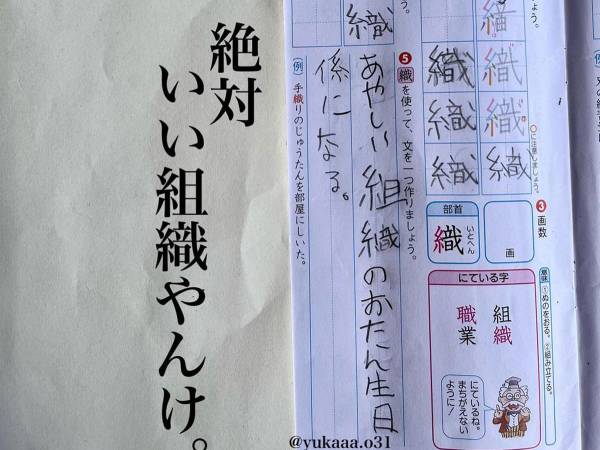 絶対
いい組織やんけ。
ょう。
織
織
織
織
○に注意しましょう。
織
織
織
❸画数
画
部首
織
いとへん
意味 ①ぬのをおる。②組み立てる。
にている字
組織
職業
にているね。
まちがえない
ように！
❺織を使って、文を一つ作りましょう。
あやしい組織のおたん生日
係になる。
例 手織りのじゅうたんを部屋にしいた。
う。
織
@yukaaa.o31